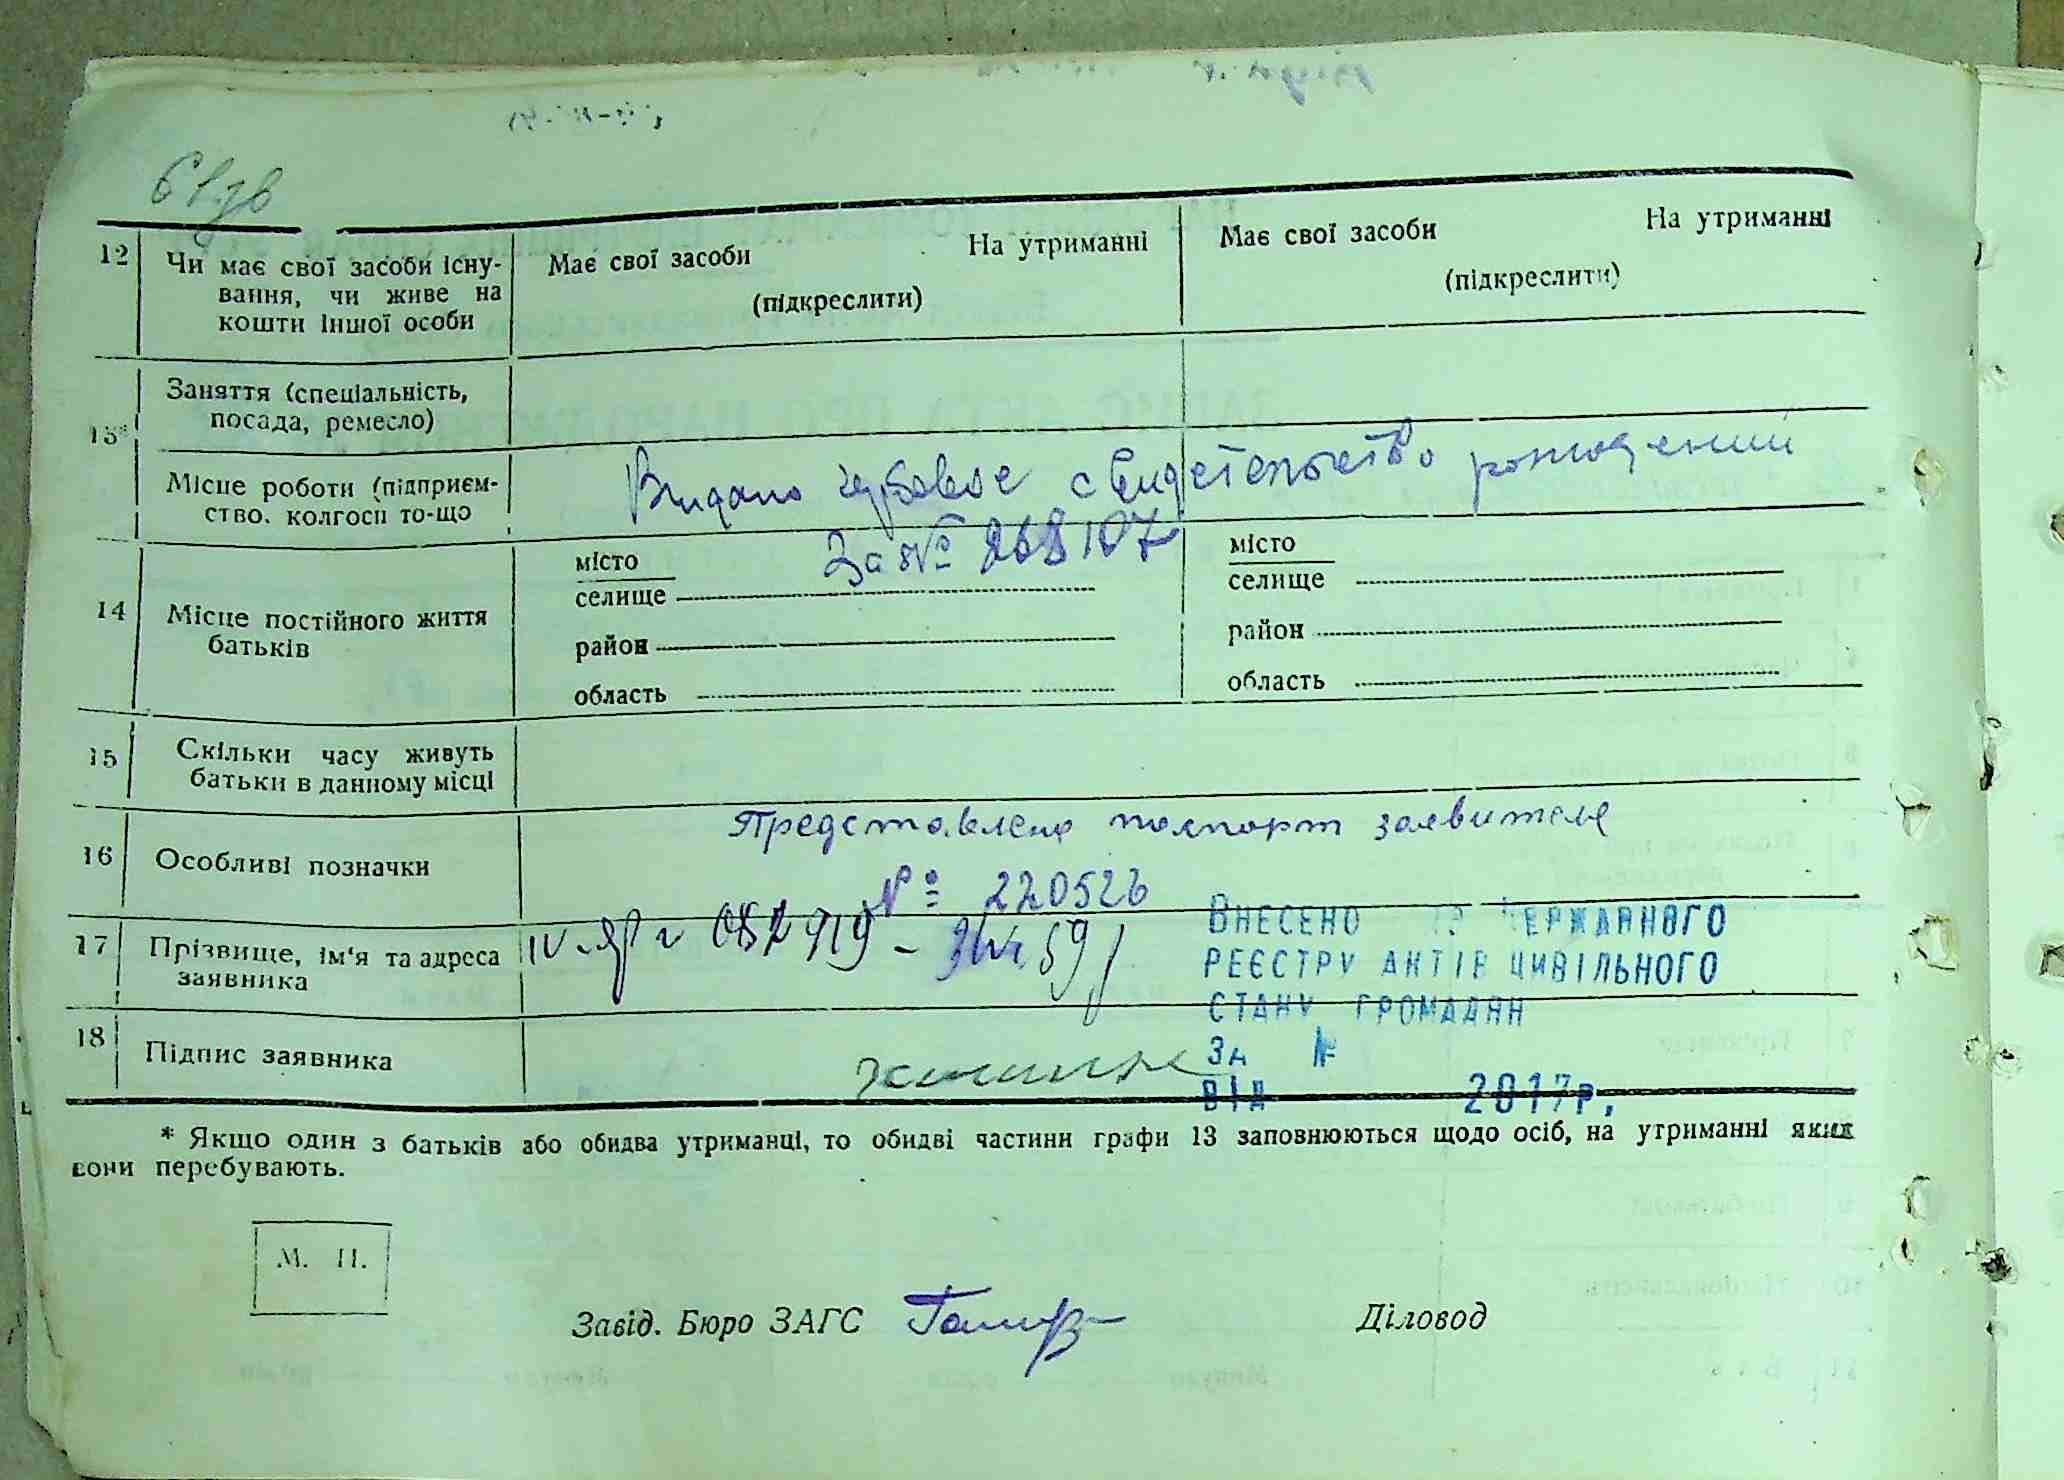 12 Чи має свої засоби існу-
вання, чи живе на
кошти іншої особи
Має свої засоби На утриманні
(підкреслити)
Має свої засоби На утриманні
(підкреслити)
13*
Заняття (спеціальність,
посада, ремесло)
Місце роботи (підприєм-
ство, колгосп то-що
Видано свидетельство рождении
За № 268107
14 Місце постійного життя
батьків
місто
селище
район
область
місто
селище
район
область
15 Скільки часу живуть
батьки в данному місці
16 Особливі позначки
Представлено паспорт заявителя
№ 220526
17 Прізвище, ім'я та адреса
заявника
ВНЕСЕНО ДЕРЖАВНОГО
РЕЄСТРУ АКТІВ ЦИВІЛЬНОГО
СТАНУ ГРОМАДЯН
ЗА №
ВІД 2017р.
18 Підпис заявника
* Якщо один з батьків або обидва утриманці, то обидві частини графи 13 заповнюються щодо осіб, на утриманні яких
вони перебувають.
М. П.
Завід. Бюро ЗАГС
Діловод